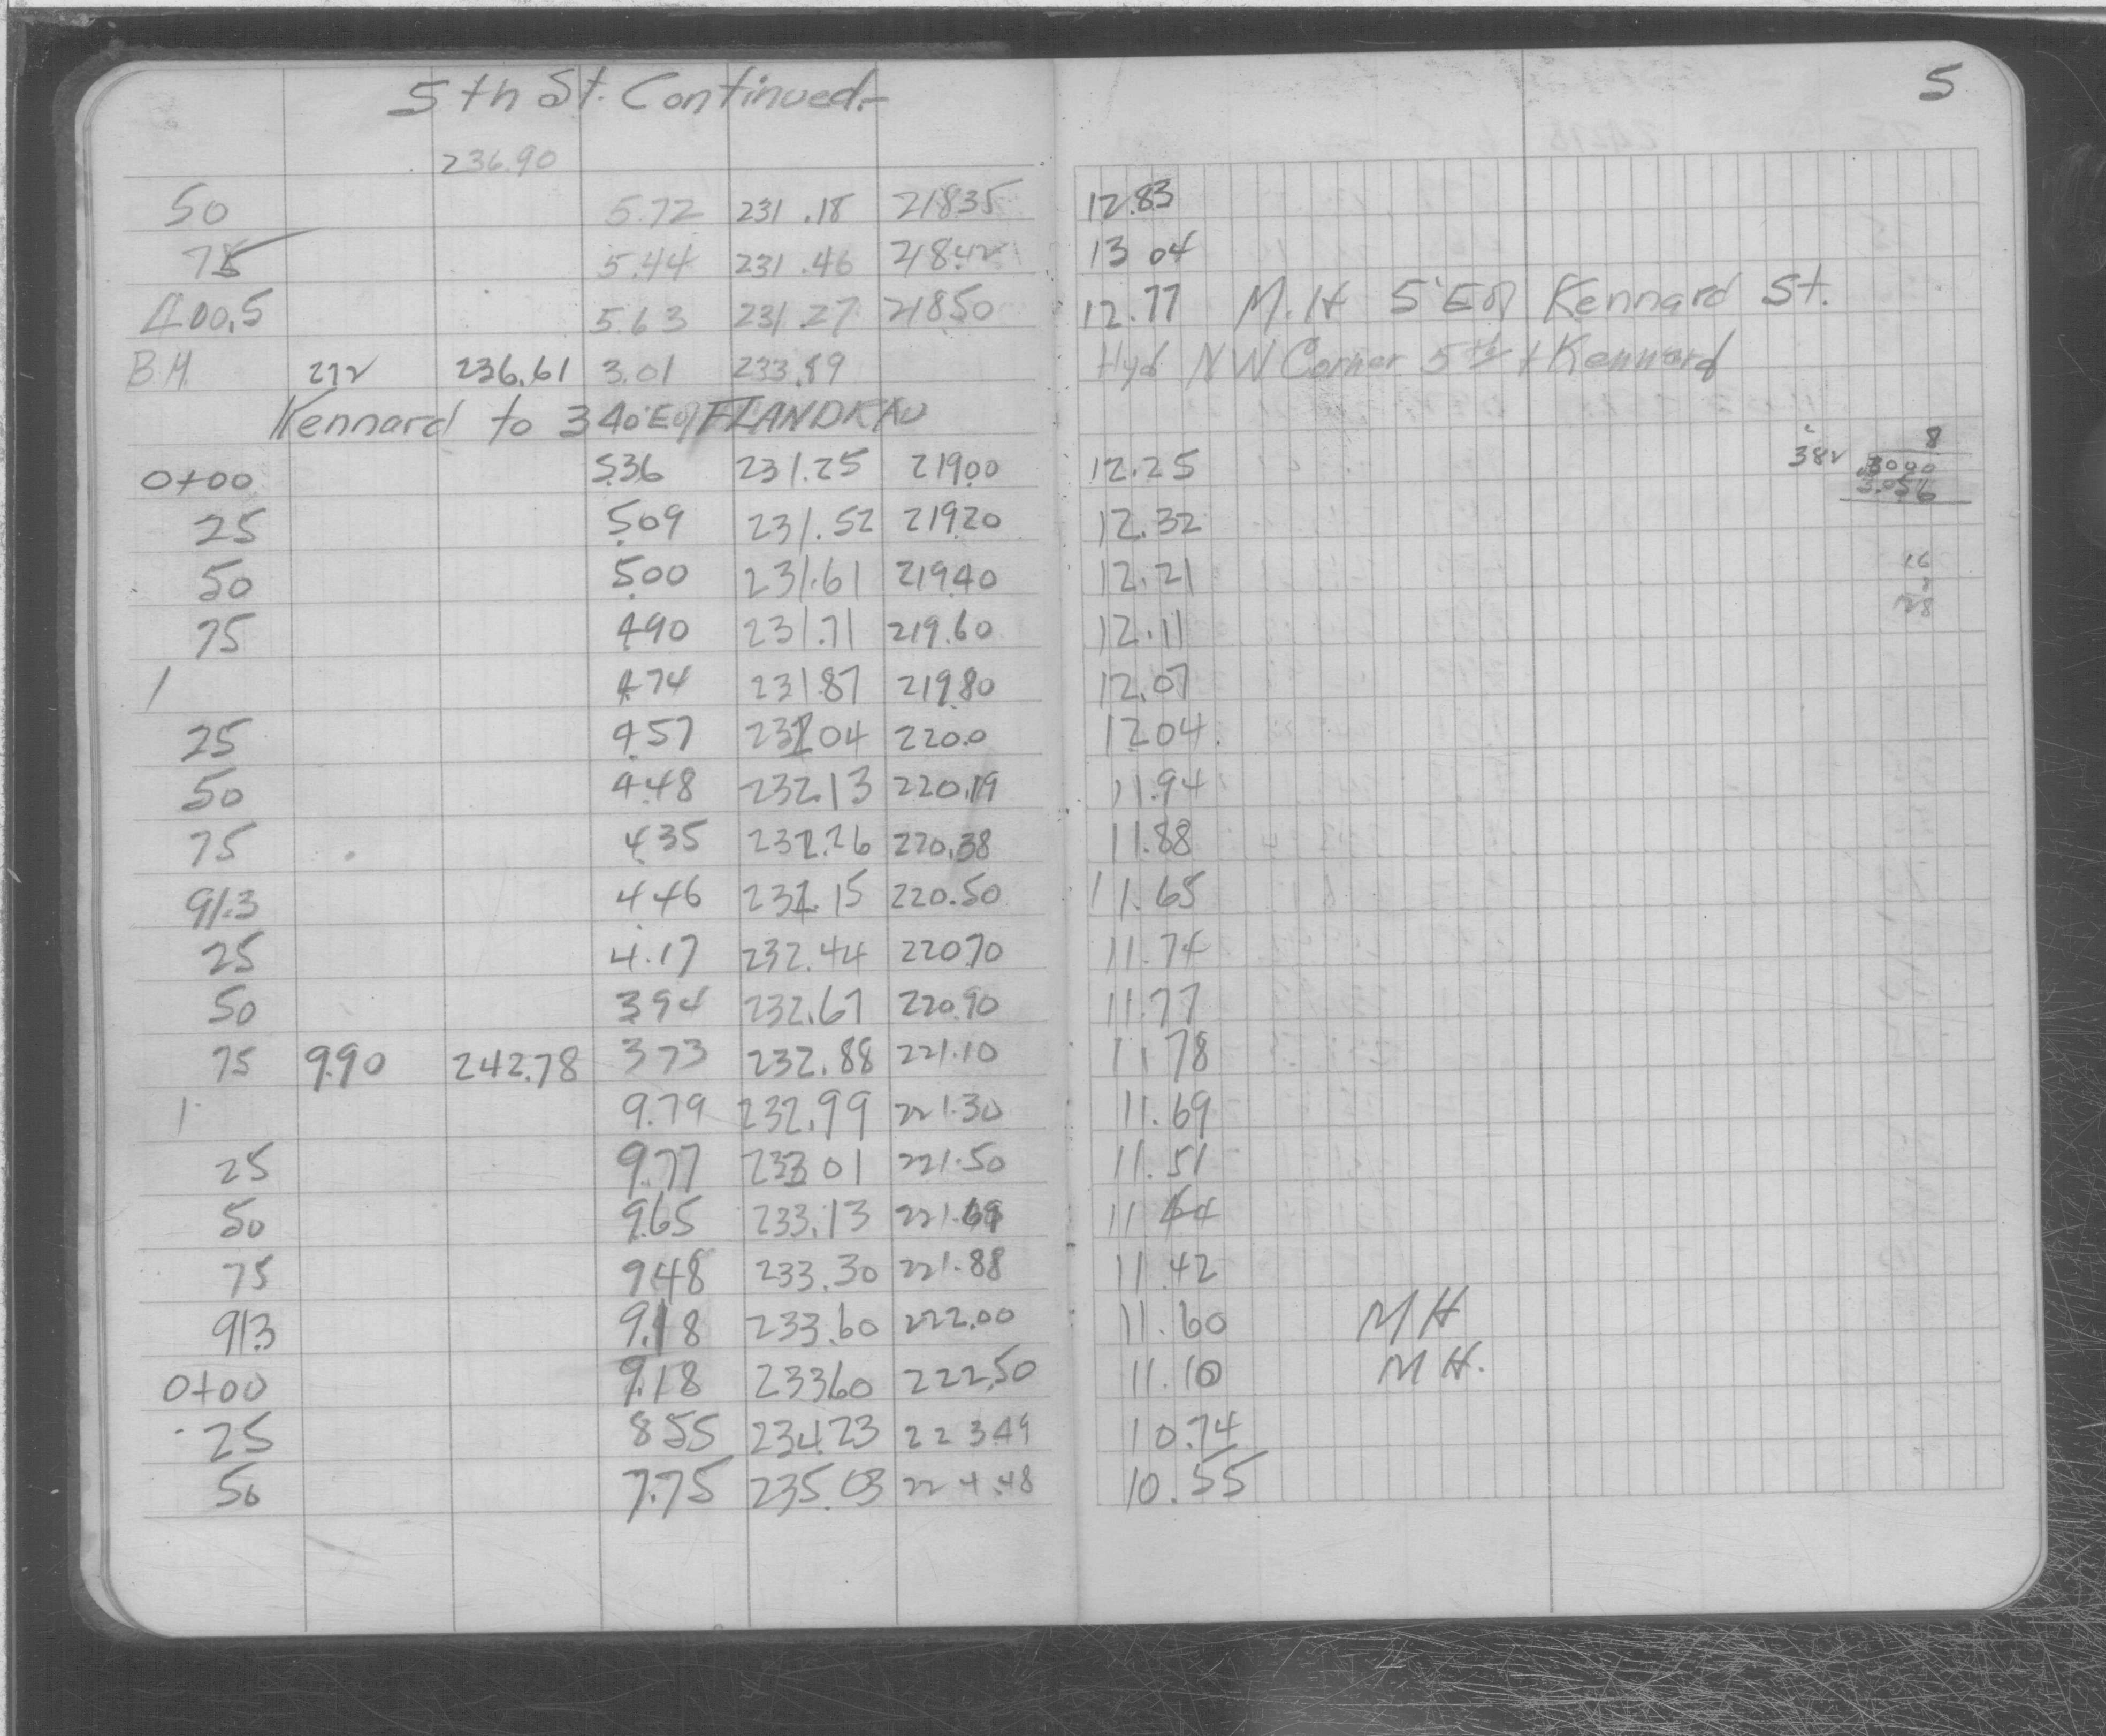 5th St. Continued.- 5
236.90
50 5.72 231.18 218.35 12.83
75 5.44 231.46 218.42 13 04
400.5 5.63 231.27 218.50 12.77 M.H 5'E of Kennard St.
B.M. 2.72 236.61 3.01 233.89 Hyd NW Corner 5th + Kennard
Kennard to 340'E of FLANDRAU
0+00 5.36 231.25 219.00 12.25 382 8
25 5.09 231.52 219.20 12.32
50 5.00 231.61 219.40 12.21 16
75 4.90 231.71 219.60 12.11 128
1 4.74 231.87 219.80 12.07
25 4.57 232.04 220.0 12.04
50 4.48 232.13 220.19 11.94
75 4.35 232.26 220.38 11.88
91.3 4.46 232.15 220.50 11.65
25 4.17 232.44 220.70 11.74
50 3.94 232.67 220.90 11.77
75 9.90 242.78 3.73 232.88 221.10 11.78
1 9.79 232.99 221.30 11.69
25 9.77 233.01 221.50 11.51
50 9.65 233.13 221.69 11.44
75 9.48 233.30 221.88 11.42
91.3 9.18 233.60 222.00 11.60 MH
0+00 9.18 233.60 222.50 11.10 MH.
25 8.55 234.23 223.49 10.74
50 7.75 235.03 224.48 10.55